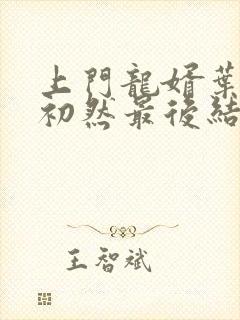 上門龍婿葉
初然最後結
王智斌